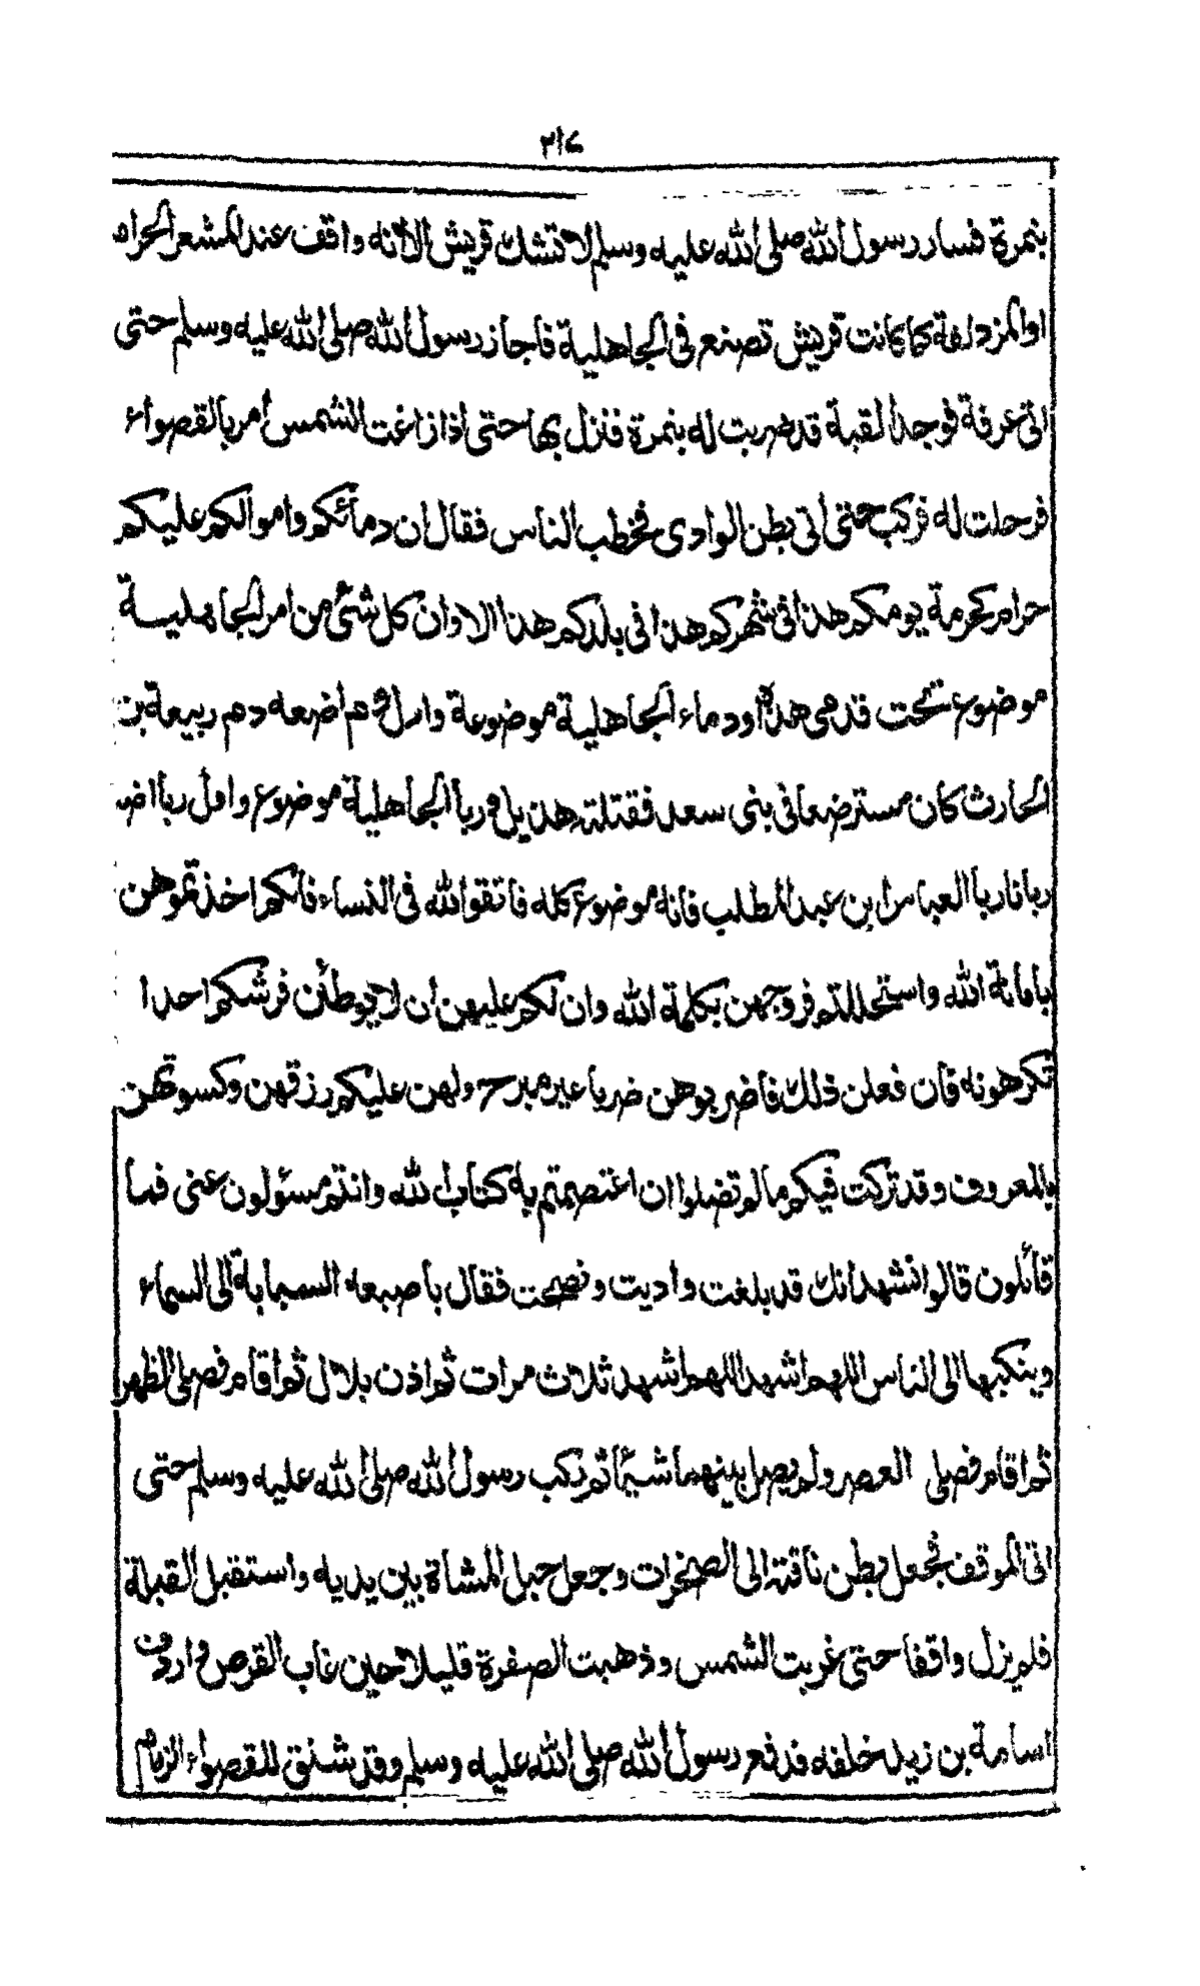 ٣١٧
بنمرة فسار رسول الله صلى الله عليه وسلم لا تشك قريش الا انه واقف عند المشعر الحرام
او المزدلفة كما كانت قريش تصنع فى الجاهلية فأجاز رسول الله صلى الله عليه وسلم حتى
اتى عرفة فوجد القبة قد ضربت له بنمرة فنزل بها حتى اذا زاغت الشمس أمر بالقصواء
فرحلت له فركب حتى أتى بطن الوادى فخطب الناس فقال ان دمائكم واموالكم عليكم
حرام كحرمة يومكم هذا فى شهركم هذا فى بلدكم هذا الا وان كل شئ من امر الجاهلية
موضوع تحت قدمى هذا ودماء الجاهلية موضوعة واول دم اضعه دم ربيعة بن
الحارث كان مسترضعا فى بنى سعد فقتلته هذيل وربا الجاهلية موضوع واول ربا اضع
ربانا ربا العباس ابن عبد المطلب فانه موضوع كله فاتقوا لله فى النساء فانكم اخذتموهن
بأمانة الله واستحللتم فروجهن بكلمة الله وان لكم عليهن أن لا يوطئن فرشكم احدا
تكرهونه فان فعلن ذلك فاضربوهن ضربا غير مبرح ولهن عليكم رزقهن وكسوتهن
بالمعروف وقد تركت فيكم مالم تضلوا ان اعتصمتم به كتاب الله وانتم مسؤلون عنى فما
قائلون قالوا نشهد انك قد بلغت واديت ونصحت فقال بأصبعه السبابة الى السماء
وينكبها الى الناس اللهم اشهد اللهم اشهد ثلاث مرات ثم اذن بلال ثم اقام فصلى الظهر
ثم اقام فصلى العصر ولم يصل بينهما شيئا ثم ركب رسول الله صلى الله عليه وسلم حتى
اتى الموقف فجعل بطن ناقته الى الصخرات وجعل حبل المشاة بين يديه واستقبل القبلة
فلم يزل واقفا حتى غربت الشمس وذهبت الصفرة قليلا حين غاب القرص واردف
اسامة بن زيد خلفه فدفع رسول الله صلى الله عليه وسلم وقد شنق للقصواء الزمام